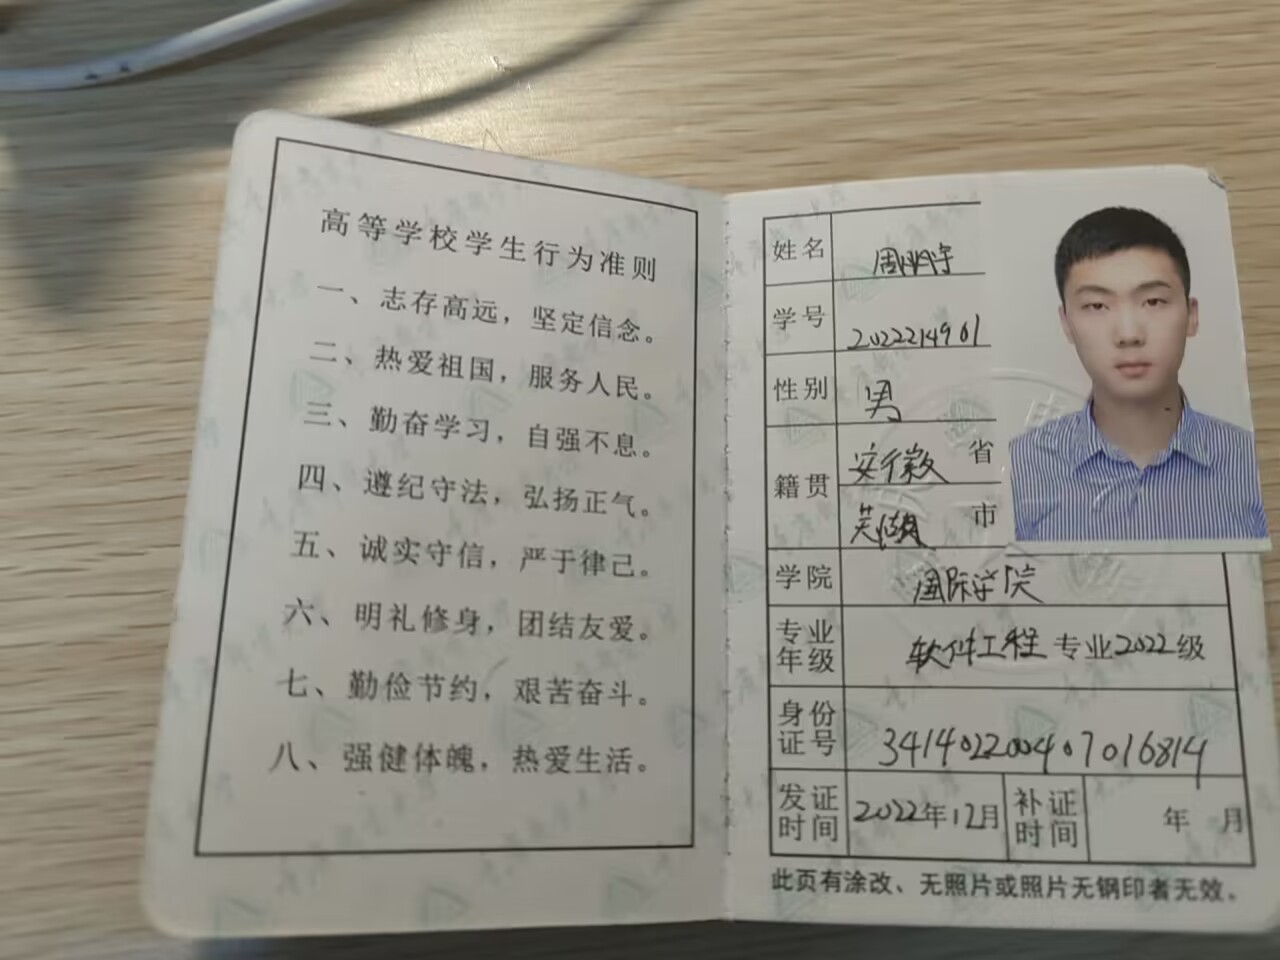 高等学校学生行为准则
一、志存高远，坚定信念。
二、热爱祖国，服务人民。
三、勤奋学习，自强不息。
四、遵纪守法，弘扬正气。
五、诚实守信，严于律己。
六、明礼修身，团结友爱。
七、勤俭节约，艰苦奋斗。
八、强健体魄，热爱生活。
姓名 周
学号 2022214901
性别 男
籍贯 安徽 省
芜湖 市
学院 国际学院
专业年级 软件工程 专业2022级
身份证号 341402200407016814
发证时间 2022年12月 补证时间 年 月
此页有涂改、无照片或照片无钢印者无效。